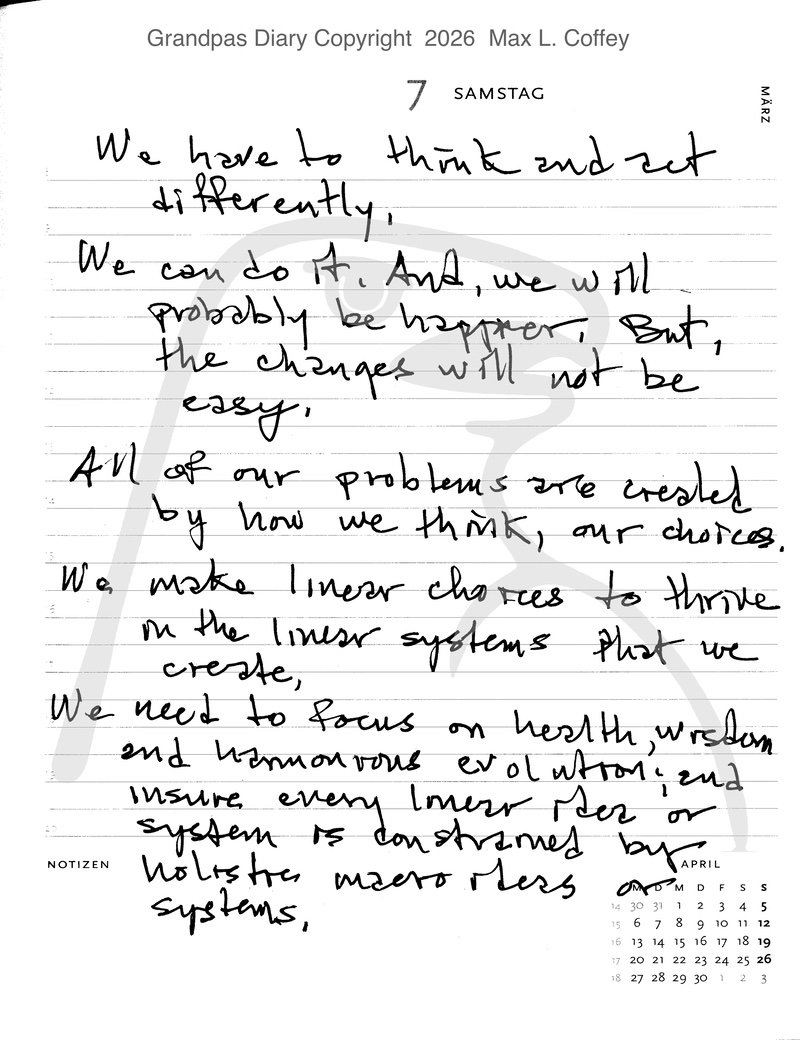 Grandpas Diary Copyright 2026 Max L. Coffey
7 SAMSTAG
MÄRZ
We have to think and act
differently.
We can do it. And, we will
probably be happier. But,
the changes will not be
easy.
All of our problems are created
by how we think, our choices.
We make linear choices to thrive
in the linear systems that we
create,
We need to focus on health, wisdom
and harmonious evolution; and
insure every linear idea or
system is constrained by
holistic macro ideas or
systems.
NOTIZEN
APRIL
M D M D F S S
14 30 31 1 2 3 4 5
15 6 7 8 9 10 11 12
16 13 14 15 16 17 18 19
17 20 21 22 23 24 25 26
18 27 28 29 30 1 2 3